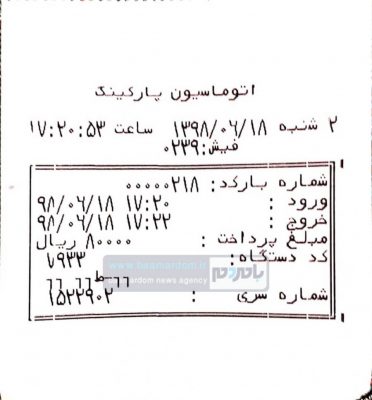 اتوماسیون پارکینگ
۲ شنبه ۱۳۹۸/۰۶/۱۸ ساعت ۱۷:۲۰:۵۳
فیش:۰۲۳۹
شماره بارکد: ۰۰۰۰۰۲۱۸
ورود : ۱۷:۲۰ ۹۸/۰۶/۱۸
خروج : ۱۷:۲۲ ۹۸/۰۶/۱۸
مبلغ پرداخت : ۸۰۰۰۰ ریال
کد دستگاه: ۷۹۳۳
www.baamardom.ir
بامردم
baamardom news agency
۶۶ط۶۶ ۶۶
شماره سری : ۱۵۲۲۹۰۲